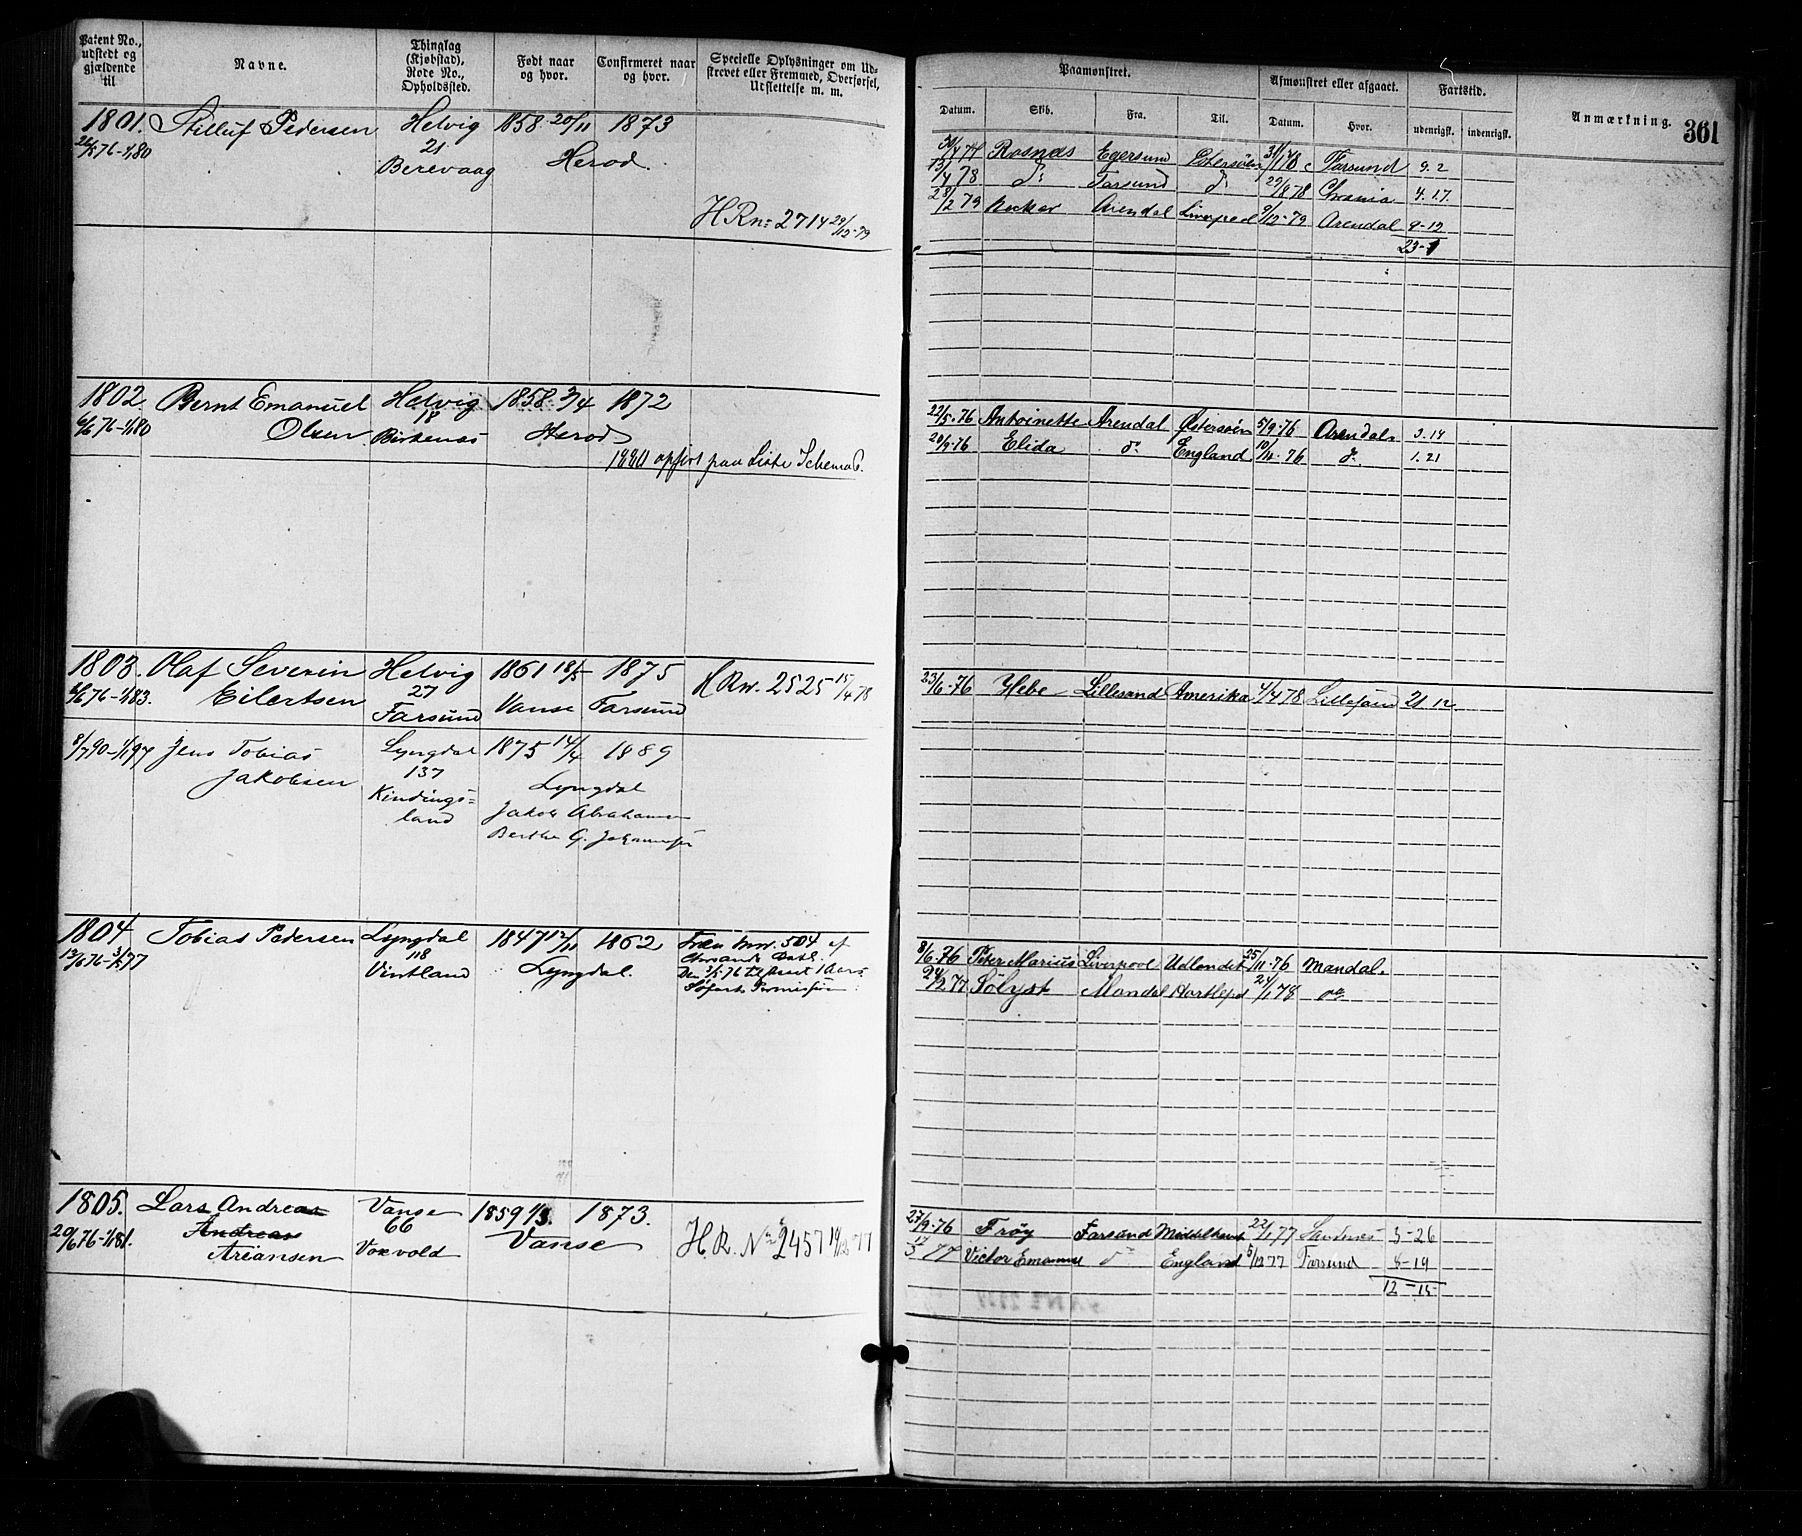 Patent No., udstedt og gjældende til
Navne.
Thinglag (Kjøbstad), Rode No., Opholdssted.
Født naar og hvor.
Confirmeret naar og hvor.
Specielle Oplysninger om Udskrevet eller Fremmed, Overførsel, Udslettelse m. m.
Paamønstret.
Afmønstret eller afgaaet.
Fartstid.
Anmærkning.
361
Datum.
Skib.
Fra.
Til.
Datum.
Hvor.
udenrigsk.
indenrigsk.
1801. Pedersen Helvig 1858 20/11 1873
26/5 76-1/1 80 21 Herod
Berevaag
H R n: 2714 29/12-79
30/4 77 Rosnæs Egersund Østersøen 31/1 78 Farsund 9. 2
13/4 78 do Farsund do 29/8 78 4. 17
28/2 79 Arendal Liverpool 9/12-79 Arendal 9-12
23-1
1802. Bernt Emanuel Helvig 1858 3/4 1872
6/6 76-1/1 80 Olsen 18 Herod
Birkenæs
1880 opført paa Liste Schema
22/5-76 Antoinette Arendal Østersøen 5/9-76 Arendal 3. 14
20/9-76 Elida do England 10/11-76 do 1. 21
1803. Olaf Severin Helvig 1861 18/5 1875 H Rw. 2525 - 15/4 78
6/6 76-1/1 83. Eilertsen 27 Vanse Farsund
Farsund
23/6-76 Hebe Lillesand Amerika 4/4 78 Lillesand 21 12
8/7 90-1/1 97 Jens Tobias Lyngdal 1875 14/4 1889
Jakobsen 137 Lyngdal
Kindingsland Jakob Abrahamsen
Berthe G.
1804 Tobias Pedersen Lyngdal 1847 12/11 1862 504 af
13/6 76-3/5 77 118 Lyngdal.
Vintland
8/6-76 Peter Marius Liverpool Udlandet 25/11-76 Mandal.
24/2 77 Sølyst Mandal Hartlepol 24/1 78 do
1805. Lars Andreas Vanse 1859 1/3 1873. H. R. No 2457 14/12 77
20/6 76-1/1 81. Andreas 66 Vanse
Ariansen Voxvold
27/9-76 Frøy Farsund Middelhavet 22/1 77 Sandnes 3-26
17/3 77 Victor Emanuel do England 5/12 77 Farsund 8-19
12-15